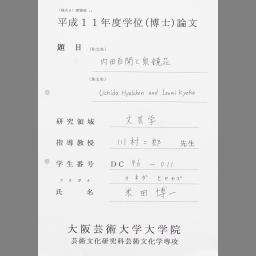 平成11年度学位(博士)論文
題目 (和文名)
内田百閒と泉鏡花
(英文名)
Uchida Hyakken and Izumi Kyoka
研究領域 文芸学
指導教授 川村二郎 先生
学生番号 DC 96-011
フリガナ
氏名 米田博一
大阪芸術大学大学院
芸術文化研究科芸術文化学専攻